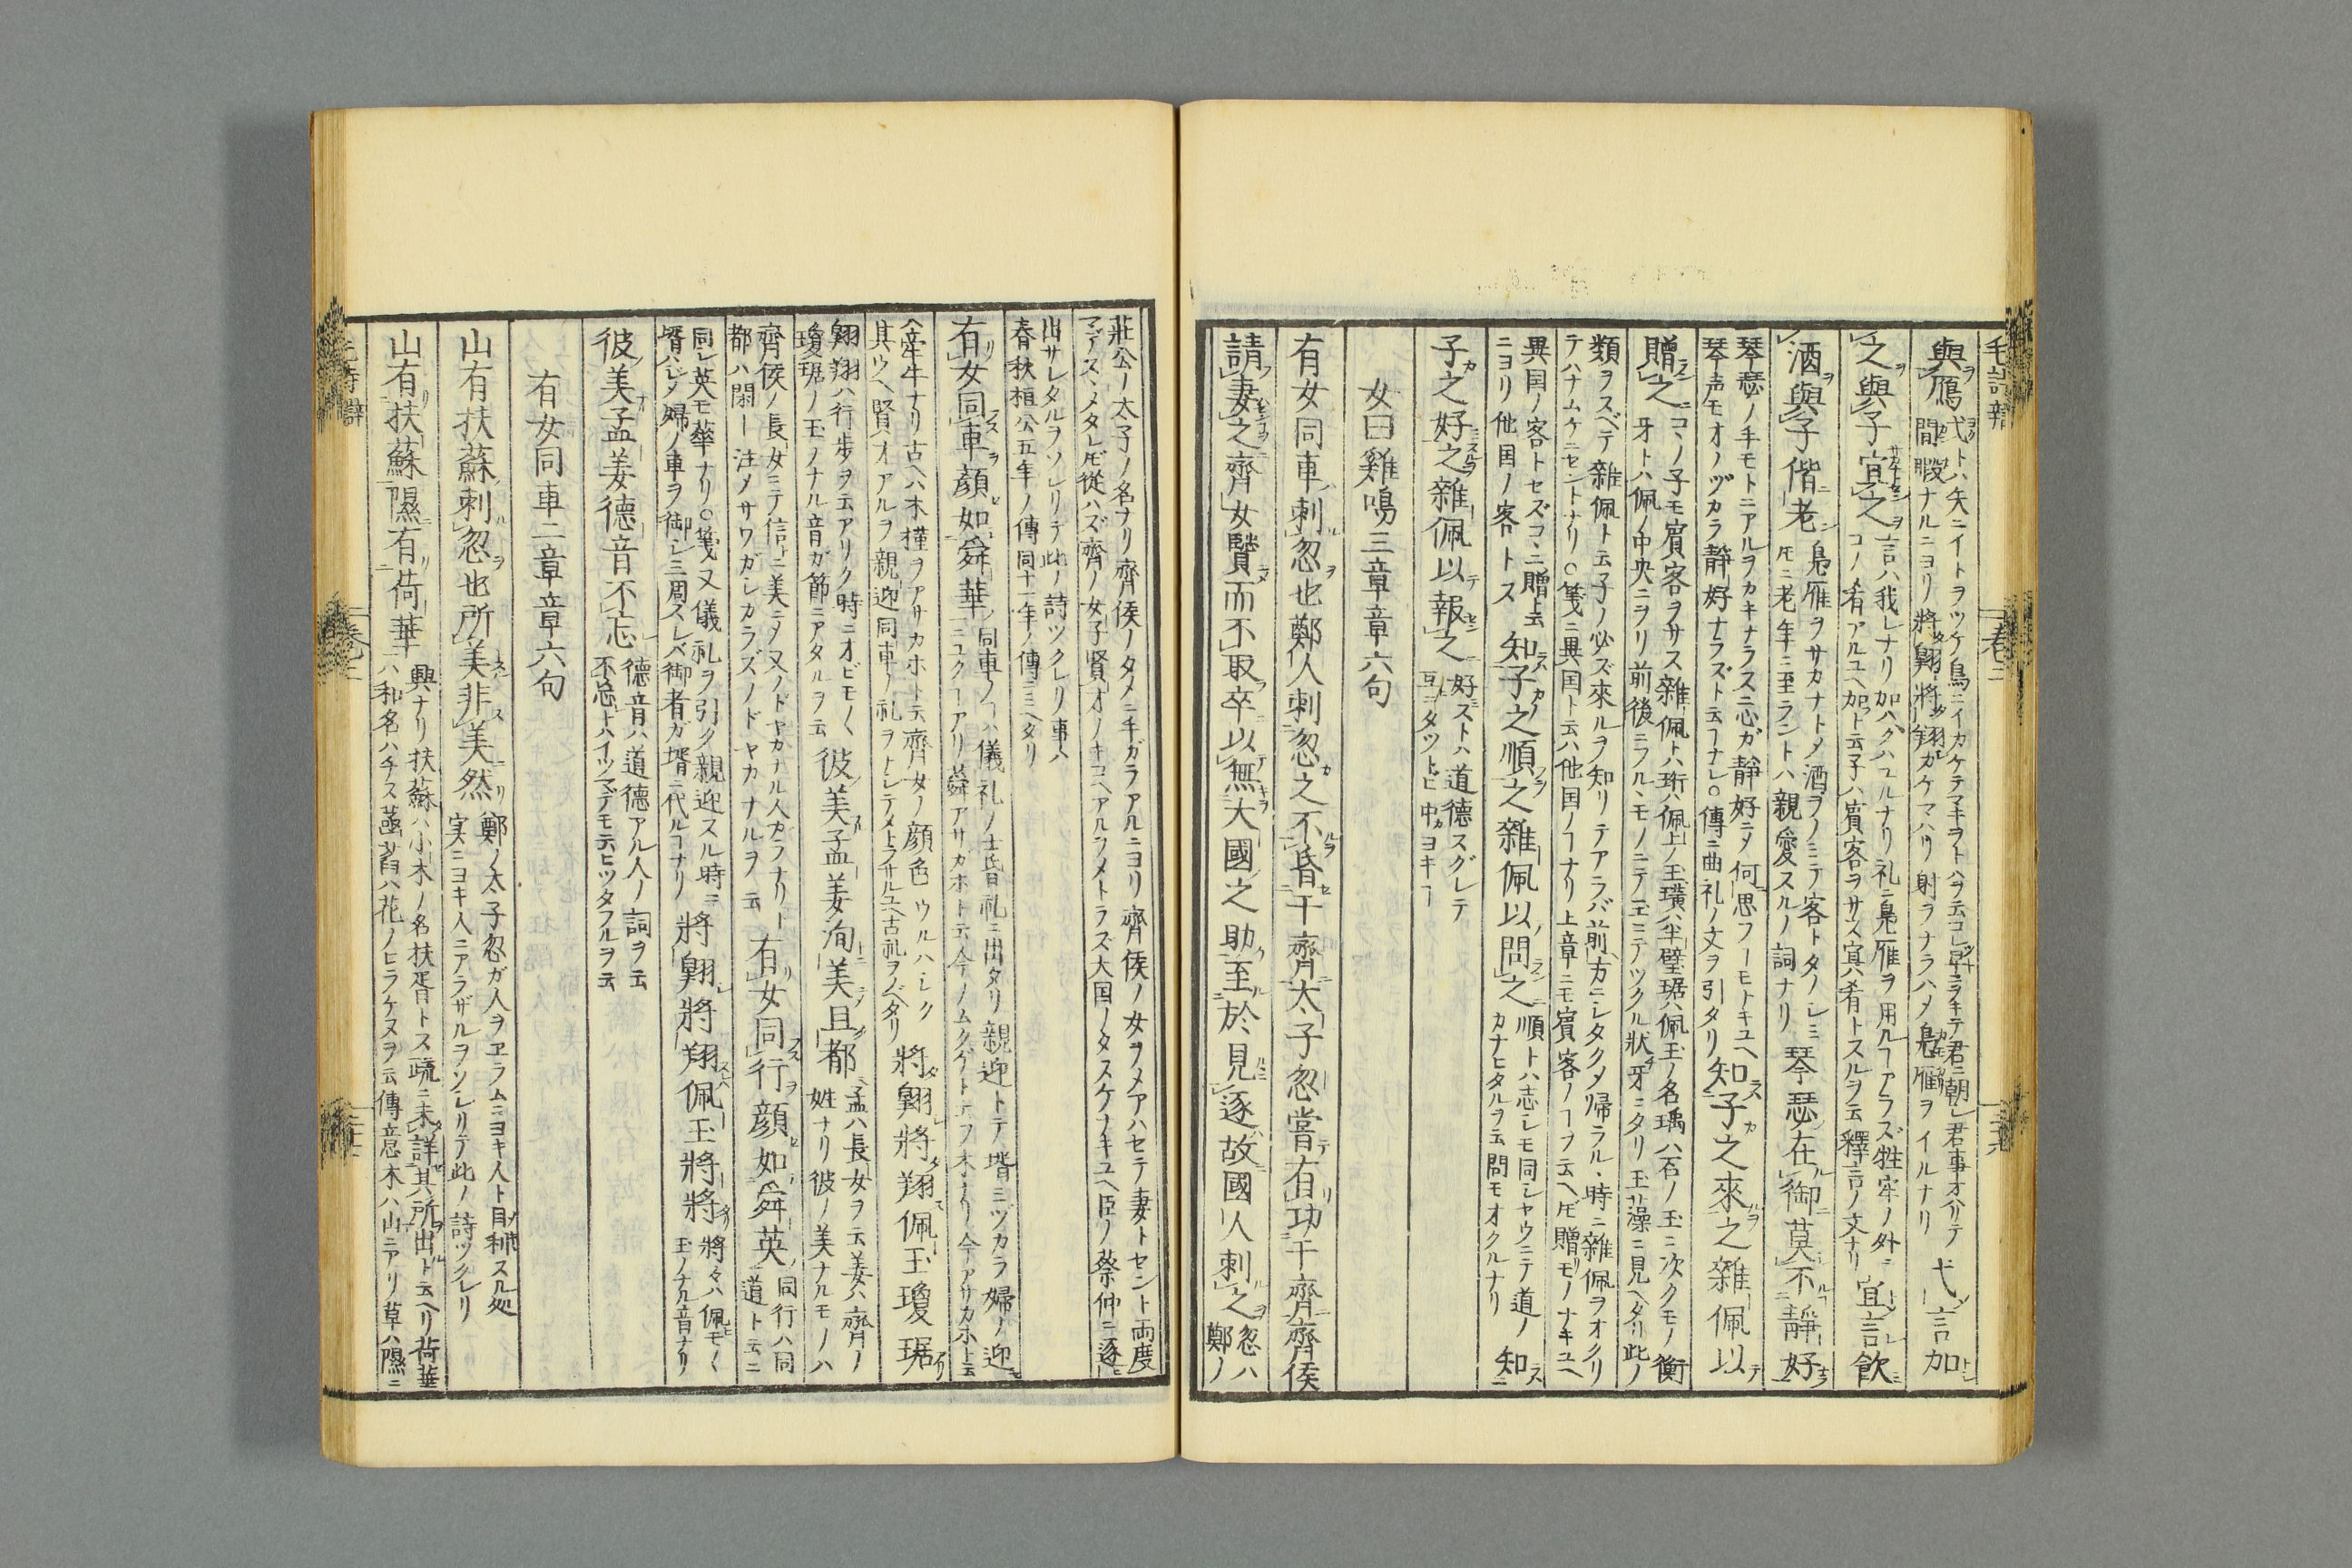 與鴈 弋トハ矢ニイトヲツケ鳥ニイカケテマキヲトハヲ云コレ早ヲキテ君ニ朝レ君事オハリテ
間暇ナルニヨリ 將翺將翔カケマハリ 射ラナラハメ鳧雁ヲイルナリ 弋言加
之與子宜之 言ハ我レナリ 加ハクハユルナリ 礼ニ鳧雁ヲ用ルヿアラズ牲牢ノ外ニ
コノ肴アルユヘ加ト云 子ハ賓客ヲサス 宜ハ肴トスルヲ云 釋言ノ文ナリ 宜言飮
酒與子偕老 鳧雁ヲサカナトメ酒ヲノミテ客トタノシミ
圧ニ老年ニ至ラントハ親愛スルノ詞ナリ 琴瑟在御莫不靜好
琴瑟ノ手モトニアルヲカキナラスニ心ガ靜好ニメ何思フヿモトキユヘ
琴声モオノヅカラ靜好ナラズト云ヿナレ○傳ニ曲礼ノ文ヲ引タリ 知子之來之雜佩以
贈之 コノ子モ賓客ヲサス雜佩トハ珩ハ佩上ノ玉璜ハ半璧琚ハ佩玉ノ名瑀ハ石ノ玉ニ次クモノ衡
牙トハ佩ノ中央ニヲリ前後ニフルヽモノニテ玉ニテツクル状牙ニタリ 玉藻ニ見ヘタリ此ノ
類ヲスベテ雜佩ト云子ノ必ズ來ルヲ知リテアラバ前方ニシタクメ帰ラルヽ時ニ雜佩ヲオクリ
テハナムケニセントナリ○箋ニ異国ト云ハ他国ノヿナリ上章ニモ賓客ノヿヲ云ヘ圧贈モノナキユヘ
異国ノ客トセズコヽニ贈ト云
ニヨリ他国ノ客トス 知子之順之雜佩以問之 順トハ志レモ同シヤウニテ道ノ
カナヒタルヲ云問モオクルナリ 知
子之好之雜佩以報之 好ストハ道德スグレテ
互ニタツトヒ中ヨキヿ
女曰雞鳴三章章六句
有女同車刺忽也鄭人刺忽之不昏于齊太子忽嘗有功于齊齊侯
請妻之齊女賢而不取卒以無大國之助至於見逐故國人刺之 忽ハ
鄭ノ
莊公ノ太子ノ名ナリ齊侯ノタメニ手ガラアルニヨリ齊侯ノ女ヲメアハセテ妻トセント両度
マデスヽメタレ圧從ハズ齊ノ女子賢オノキコヘアルヲメトラズ大国ノタスケナキユヘ臣ノ祭仲ニ逐
出サレタルヲソレリテ此ノ詩ツクレリ事ハ
春秋桓公五年ノ傳同十一年ノ傳ニミヘタリ
有女同車顔如舜華 同車ノヿハ儀礼ノ士昏礼ニ出タリ親迎トテ壻ミヅカラ婦ノ迎
ニユクヿアリ舜アサガホト云今ノムクゲト云フ木ナリ今アサカホト云
ヘ牽牛ナリ古ヘハ木槿ヲアサカホト云齊女ノ顔色ウルハシク
其ウヘ賢オアルヲ親迎同車ノ礼ヲトレテメトラサルユヘ古礼ヲノベタリ 將翺將翔佩玉瓊琚
翺翔ハ行歩ヲ云アリク時ニオビモノヽ
瓊琚ノ玉ノナル音ガ節ニアタルヲ云 彼美孟姜洵美且都 孟ハ長女ヲ云姜ハ齊ノ
姓ナリ彼ノ美ナルモノハ
齊侯ノ長女ニテ信ニ美ニメ又ノドヤカナル人カラナリト
都ハ閑ー注メサワガシカラズノドヤカナルヲ云 有女同行顔如舜英 同行ハ同
道ト云ニ
同レ英モ華ナリ○箋ノ又儀礼ヲ引ク親迎スル時ニ
壻ハジノ婦ノ車ヲ御レ三周スレバ御者ガ壻ニ代ルヿナリ 將翺將翔佩玉將將 將々ハ佩モノヽ
玉ノナル音ナリ
彼美孟姜德音不忘 德音ハ道德アル人ノ詞ヲ云
不忘トハイツマデモ云ヒツタフルヲ云
有女同車二章章六句
山有扶蘇刺忽也所美非美然 鄭ノ太子忽ガ人ヲヱラムニヨキ人ト目利スル処
実ニヨキ人ニアラザルヲソレリテ此ノ詩ツクレリ
山有扶蘇隰有荷華 興ナリ扶蘇ハ小木ノ名扶胥トス疏ニ未詳其所出ト云ヘリ荷華
ハ和名ハチス菡萏ハ花ノヒラケヌヲ云傳意木ハ山ニアリ草ハ隰ニ